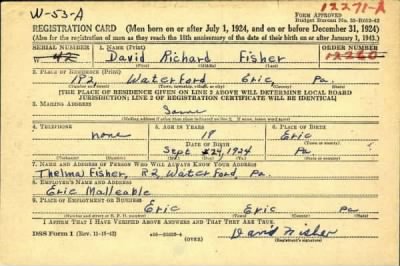 W-53-A
12271-A
FORM APPROVED
Budget Bureau No. 33-R012-42
REGISTRATION CARD (Men born on or after July 1, 1924, and on or before December 31, 1924)
(Also for the registration of men as they reach the 18th anniversary of the date of their birth on or after January 1, 1943.)
SERIAL NUMBER
1. NAME (Print)
ORDER NUMBER
W 42
David Richard Fisher
12260
2. PLACE OF RESIDENCE (Print)
R2, Waterford Erie, Pa.
[THE PLACE OF RESIDENCE GIVEN ON LINE 2 ABOVE WILL DETERMINE LOCAL BOARD
JURISDICTION; LINE 2 OF REGISTRATION CERTIFICATE WILL BE IDENTICAL]
3. MAILING ADDRESS
Same
4. TELEPHONE
5. AGE IN YEARS
6. PLACE OF BIRTH
none
18
Erie
DATE OF BIRTH
Sept 24, 1924
Pa.
7. NAME AND ADDRESS OF PERSON WHO WILL ALWAYS KNOW YOUR ADDRESS
Thelma Fisher, R2, Waterford, Pa.
8. EMPLOYER'S NAME AND ADDRESS
Erie Malleable
9. PLACE OF EMPLOYMENT OR BUSINESS
Erie Erie Pa.
I AFFIRM THAT I HAVE VERIFIED ABOVE ANSWERS AND THAT THEY ARE TRUE.
DSS Form 1 (Rev. 11-16-42)
(OVER)
David Fisher
(Registrant's signature)